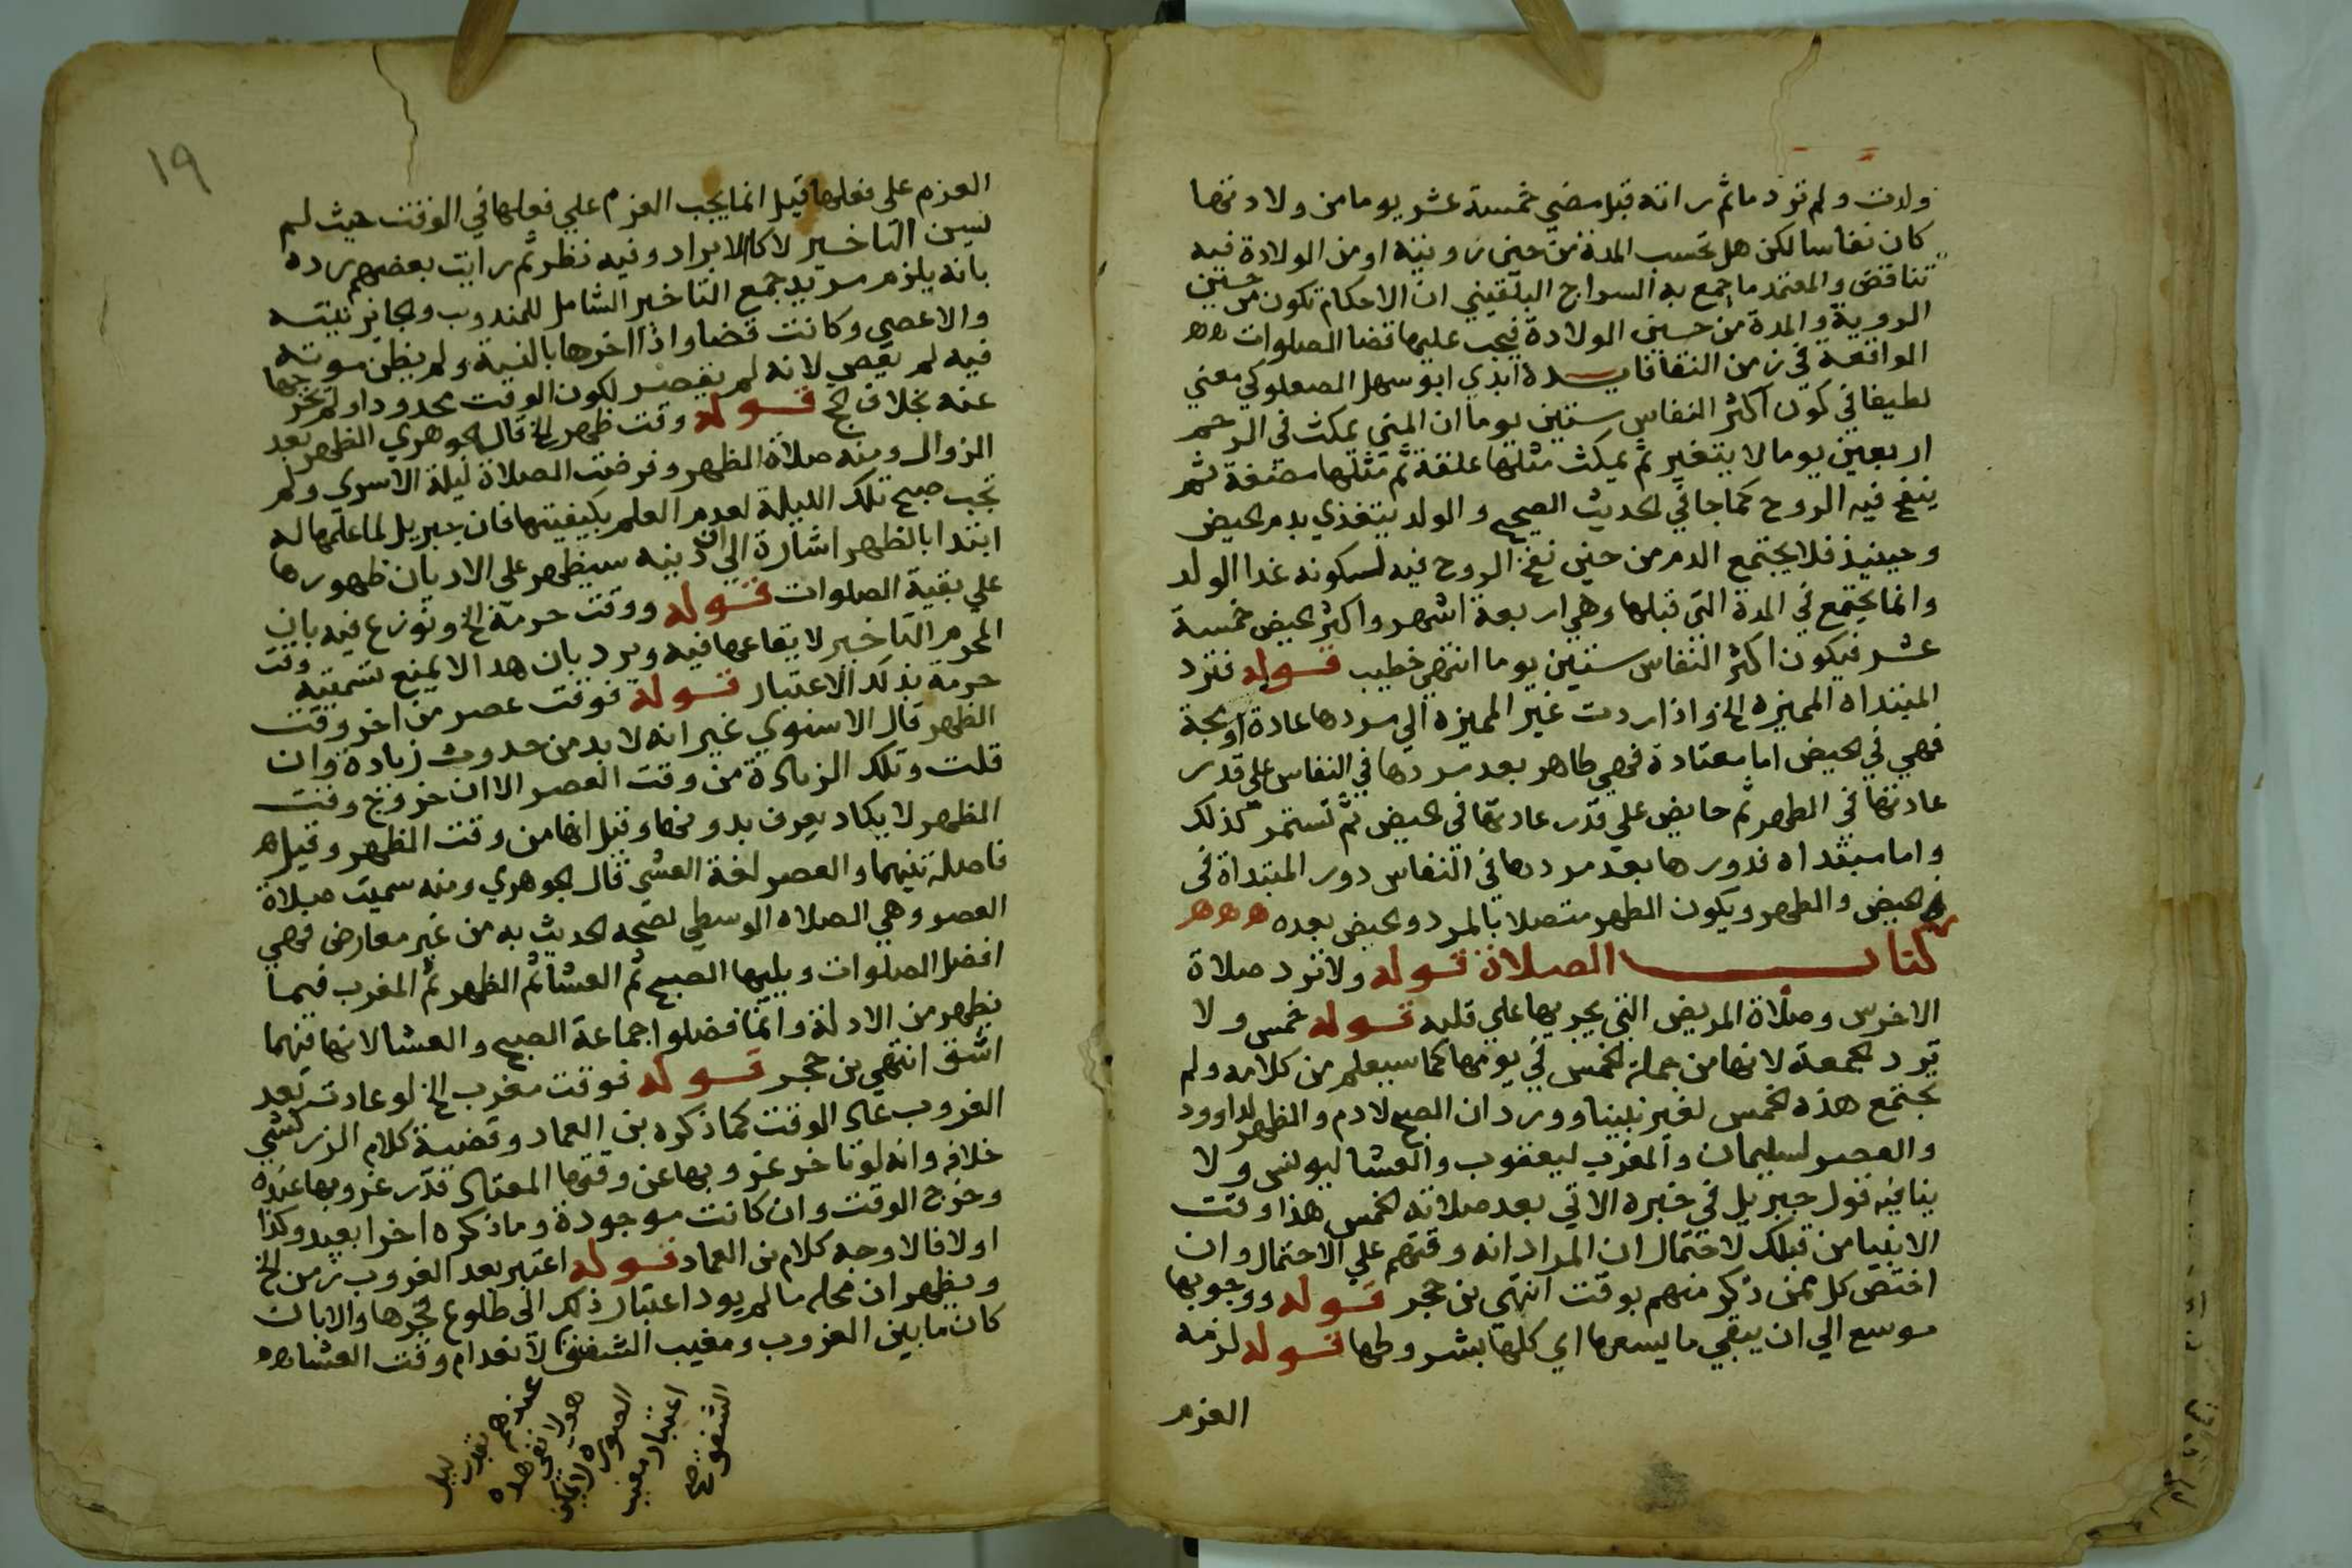 ولدت ولم تر دما ثم راته قبل مضي خمسة عشر يوما من ولادتها
كان نفاسا لكن هل تحسب المدة من حين رويته او من الولادة فيه
تناقض والمعتمد ما جمع به السراج البلقيني ان الاحكام تكون من حين
الروية والمدة من حين الولادة فيجب عليها قضا الصلوات هه
الواقعة في زمن النقا فايدة ابدي ابو سهل الصعلوكي معني
لطيفا في كون اكثر النفاس ستين يوما ان المني يمكث في الرحم
اربعين يوما لا يتغير ثم يمكث مثلها علقة ثم مثلها مضغة ثم
ينفخ فيه الروح كما جا في الحديث الصحيح والولد يتغذي بدم الحيض
وحينيذ فلا يجتمع الدم من حين نفخ الروح فيه لكونه غدا الولد
وانما يجتمع في المدة التي قبلها وهي اربعة اشهر واكثر الحيض خمسة
عشر فيكون اكثر النفاس ستين يوما انتهي خطيب قوله فترد
المبتداه المميزه الخ واذا ردت غير المميزة الي مردها عادة او
فهي في الحيض اما معتادة فهي طاهر بعد مردها في النفاس علي قدر
عادتها في الطهر ثم حايض علي قدر عادتها في الحيض ثم تستمر كذلك
واما مبتداه فدورها بعد مردها في النفاس دور المبتداة في
الحيض والطهر ويكون الطهر متصلا بالمرد والحيض بعده ههه
كتاب الصلاة قوله ولا ترد صلاة
الاخرس وصلاة المريض التي يجريها علي قلبه قوله خمس ولا
ترد الجمعة لانها من جملة الخمس في يومها كما سيعلم من كلامه ولم
تجتمع هذه الخمس لغير نبينا وورد ان الصبح لادم والظهر لداوود
والعصر لسليمان والمغرب ليعقوب والعشا ليونس ولا
ينافيه قول جبريل في خبره الاتي بعد صلاته الخمس هذا وقت
الانبيا من قبلك لاحتمال ان المراد انه وقتهم علي الاحتمال وان
اختص كل ممن ذكر منهم بوقت انتهي بن حجر قوله ووجوبها
موسع الي ان يبقي ما يسعها اي كلها بشروطها قوله لزمه
العزم
١٩
العزم علي فعلها قيل انما يجب العزم علي فعلها في الوقت حيث لم
يسن التاخير لا كالابراد وفيه نظر ثم رايت بعضهم رده
بانه يلزم مريد جمع التاخير الشامل للمندوب والجايز نيته
والا عصي وكانت قضا واذا اخرها بالنية ولم يظن موته
فيه لم يعص لانه لم يقصر لكون الوقت محدودا ولم يخرجها
عنه بخلاف الحج قوله وقت ظهر الخ قال الجوهري الظهر بعد
الزوال ومنه صلاة الظهر وفرضت الصلاة ليلة الاسري ولم
تجب صبح تلك الليلة لعدم العلم بكيفيتها فان جبريل لما علمها له
ابتدا بالظهر اشارة الي ان دينه سيظهر علي الاديان ظهورها
علي بقية الصلوات قوله ووقت حرمة الخ ونوزع فيه بان
المحرم التاخير لا ايقاعها فيه ويرد بان هدا لا يمنع تسميته وقت
حرمة بذلك الاعتبار قوله فوقت عصر من اخر وقت
الظهر قال الاسنوي غير انه لا بد من حدوث زيادة وان
قلت وتلك الزيادة من وقت العصر الا ان خروج وقت
الظهر لا يكاد يعرف بدونها وقيل انها من وقت الظهر وقيل ه
فاصلة بينهما والعصر لغة العشي قال الجوهري ومنه سميت صلاة
العصر وهي الصلاه الوسطي لصحه الحديث به من غير معارض فهي
افضل الصلوات ويليها الصبح ثم العشا ثم الظهر ثم المغرب فيما
يظهر من الادلة وانما فضلوا جماعة الصبح والعشا لانها فيهما
اشق انتهي بن حجر قوله فوقت مغرب الخ لو عادت بعد
الغروب عاد الوقت كما ذكره بن العماد وقضية كلام الزركشي
خلافه وانه لو تاخر غروبها عن وقتها المعتاد قدر غروبها عنده
وخرج الوقت وان كانت موجودة وما ذكره اخرا بعيد وكذا
اولا فالاوجه كلام بن العماد قوله اعتبر بعد الغروب زمن الخ
ويظهر ان محله ما لم يود اعتبار ذلك الي طلوع فجرها والا بان
كان ما بين الغروب ومغيب الشفق لانعدام وقت العشا هه
عندهم بقدر ليل
هولا نفي صلاه
الصوره لا يمكن
اعتبار مغيب
الشفق صح